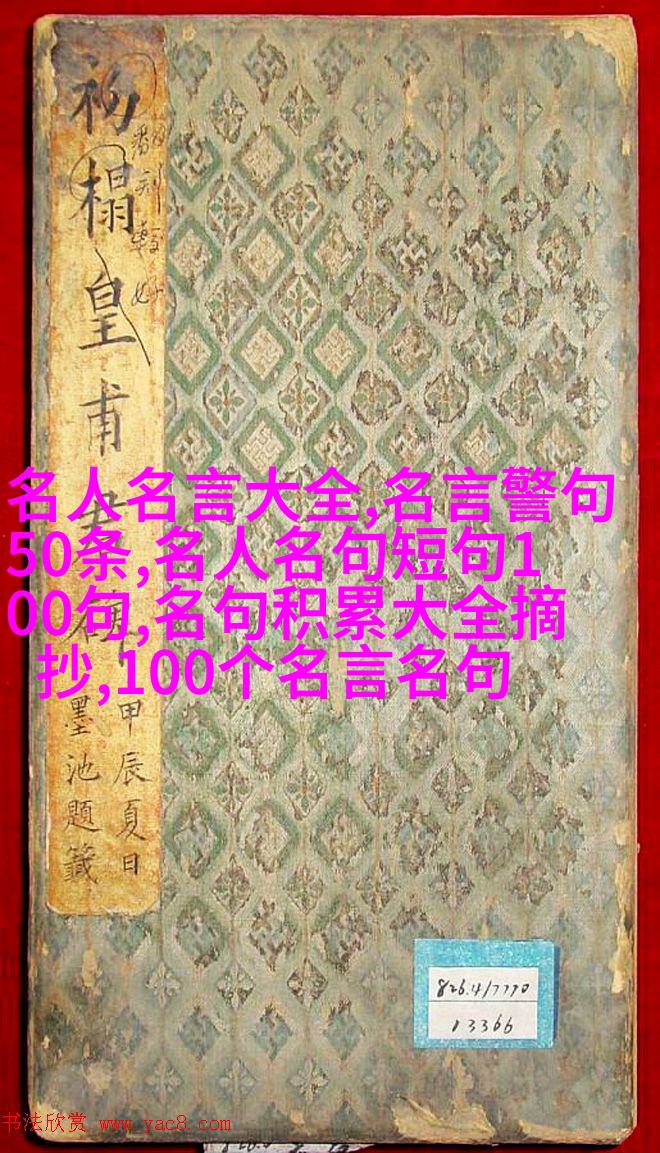 初榻皇甫君碑
甲辰夏日
墨池題籤
名人名言大全,名言警句
50条,名人名句短句1
00句,名句积累大全摘
抄,100个名言名句
826.4/7770
13366
书法欣赏 www.yac8.com